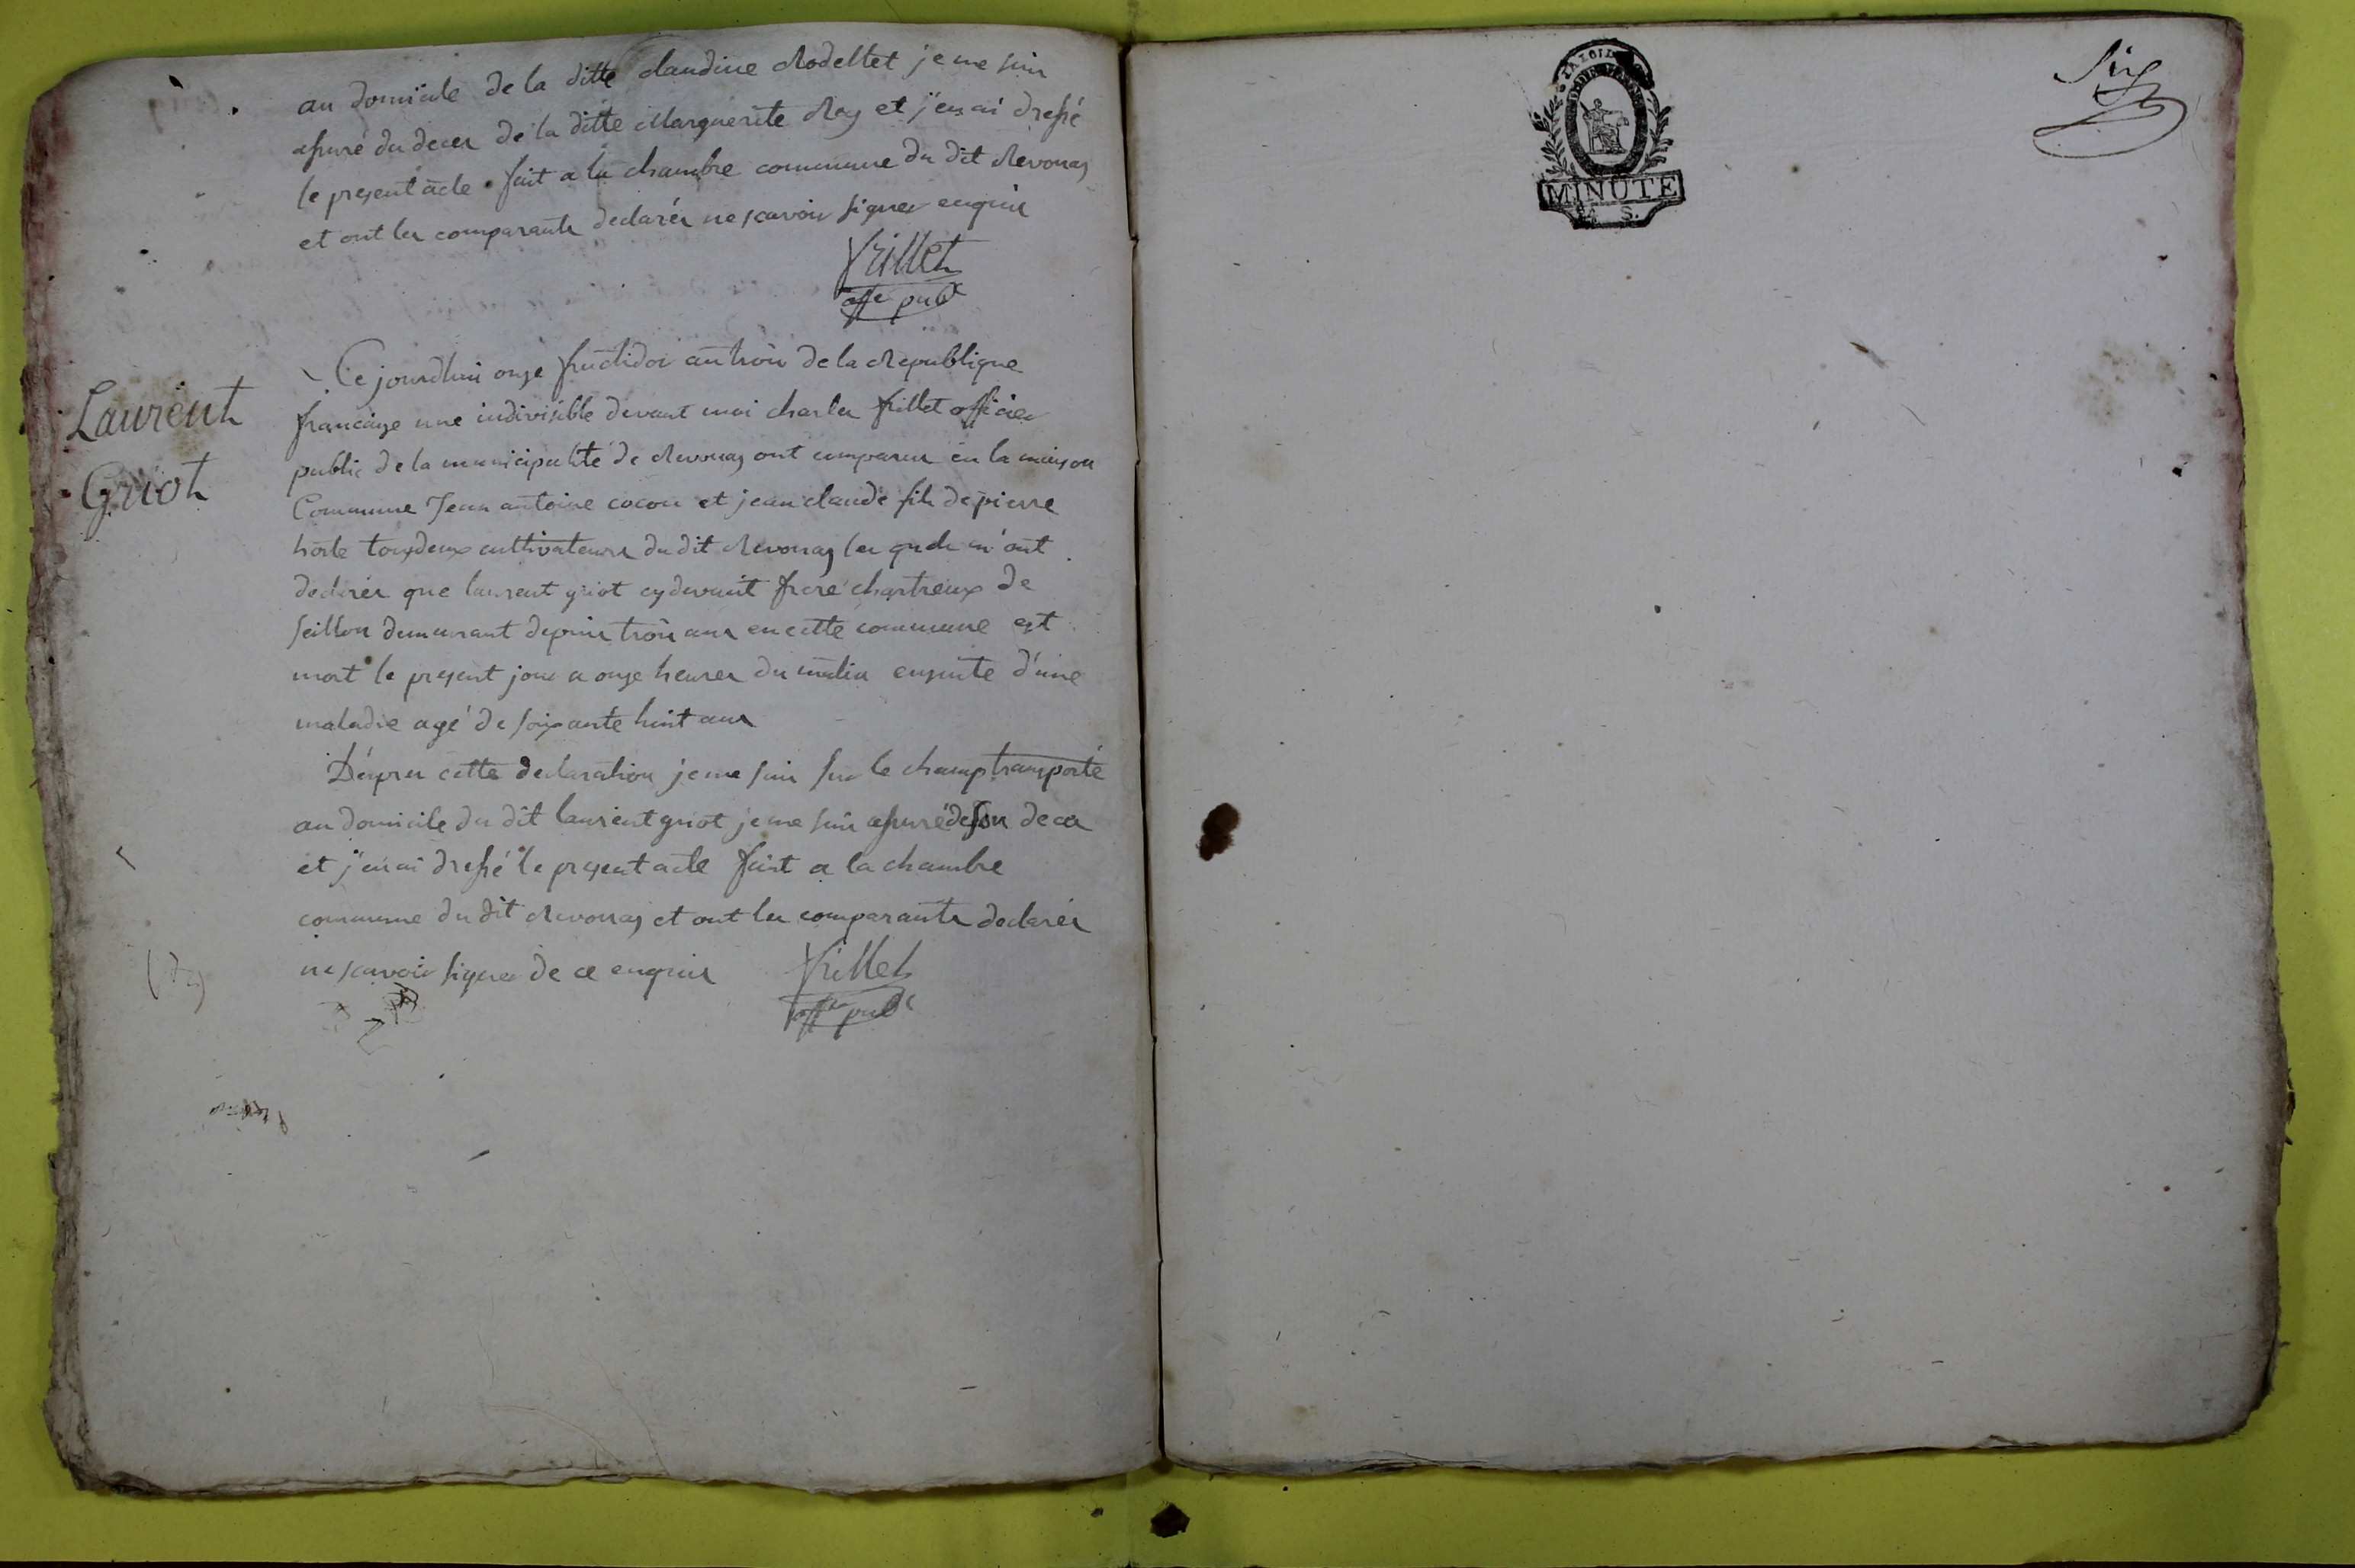 au domicile de la ditte claudine Rodettet je me suis
assuré du deces de la ditte Marguerite Rey et j'en ai dressé
le present acte. fait a la chambre commune du dit Revonas
et ont les comparants declarés ne scavoir signer enquis
frillet
offe pub
Ce jourdhui onze fructidor an trois de la Republique
francaise une indivisible devant moi charles frillet officier
Laurent
public de la municipalité de Revonas ont comparus en la maison
Griot
Commune Jean antoine cocon et jean claude fils de pierre
tous deux cultivateurs du dit Revonas les quels m'ont
declarés que laurent griot cydevant frere chartreux de
seillon demeurant depuis trois ans en cette commune est
mort le present jour a onze heures du matin ensuite d'une
maladie agé de soixante huit ans
D'apres cette declaration je me suis sur le champ transporté
au domicile du dit laurent griot je me suis assuré de son deces
et j'en ai dressé le present acte fait a la chambre
commune du dit Revonas et ont les comparants declarés
ne scavoir signer de ce enquis
frillet
offe pub
MINUTE
S.
six